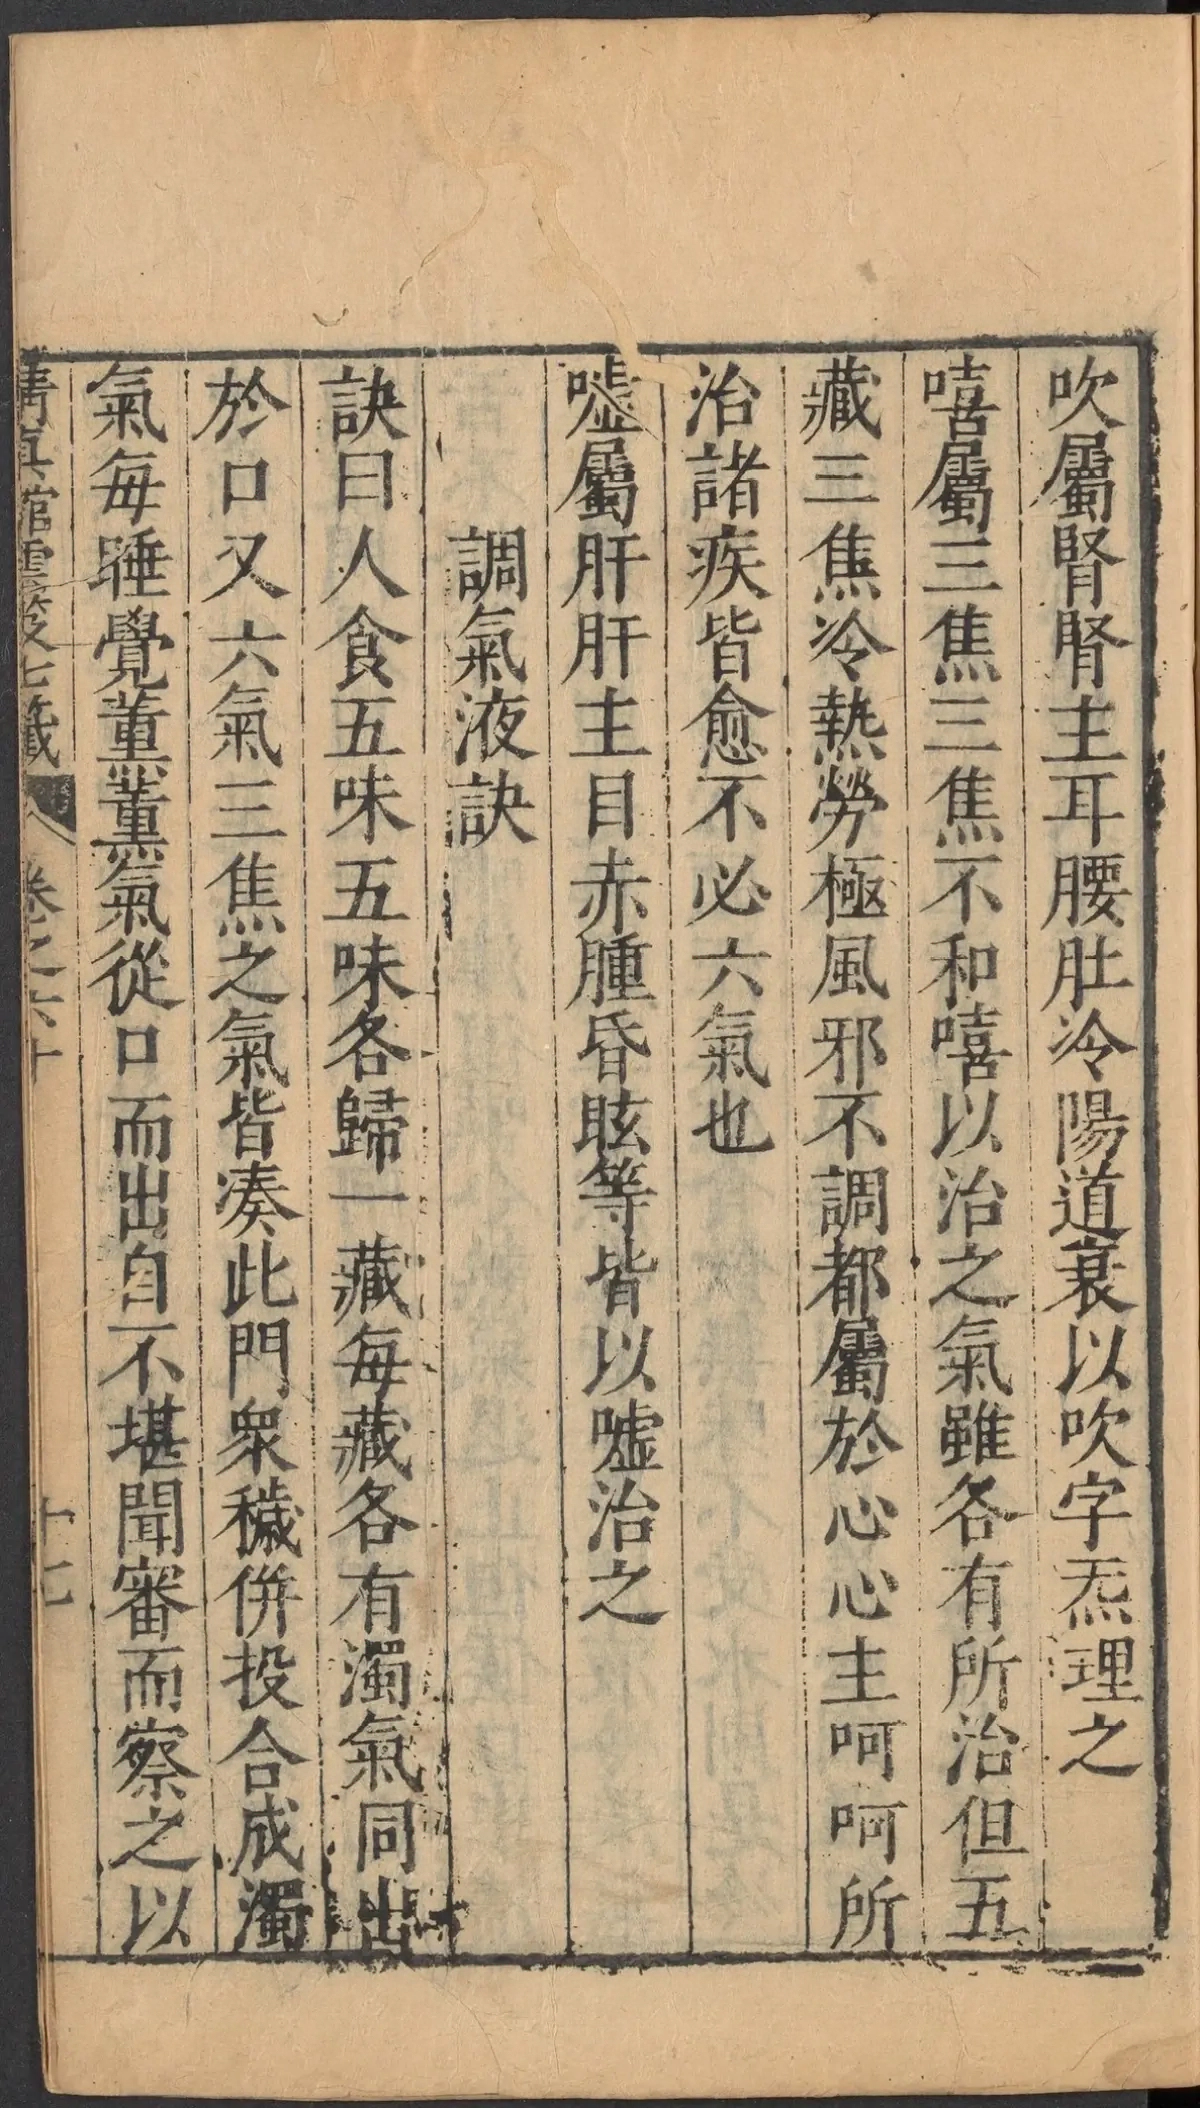 吹屬腎腎主耳腰肚冷陽道衰以吹字炁理之
嘻屬三焦三焦不和嘻以治之氣雖各有所治但五
藏三焦冷熱勞極風邪不調都屬於心心主呵呵所
治諸疾皆愈不必六氣也
噓屬肝肝主目赤腫昏眩等皆以噓治之
調氣液訣
訣曰人食五味五味各歸一藏每藏各有濁氣同出
於口又六氣三焦之氣皆凑此門衆穢併投合成濁
氣每睡覺薰薰氣從口而出自不堪聞審而察之以
清真館雲笈七籤
卷之六十
十七